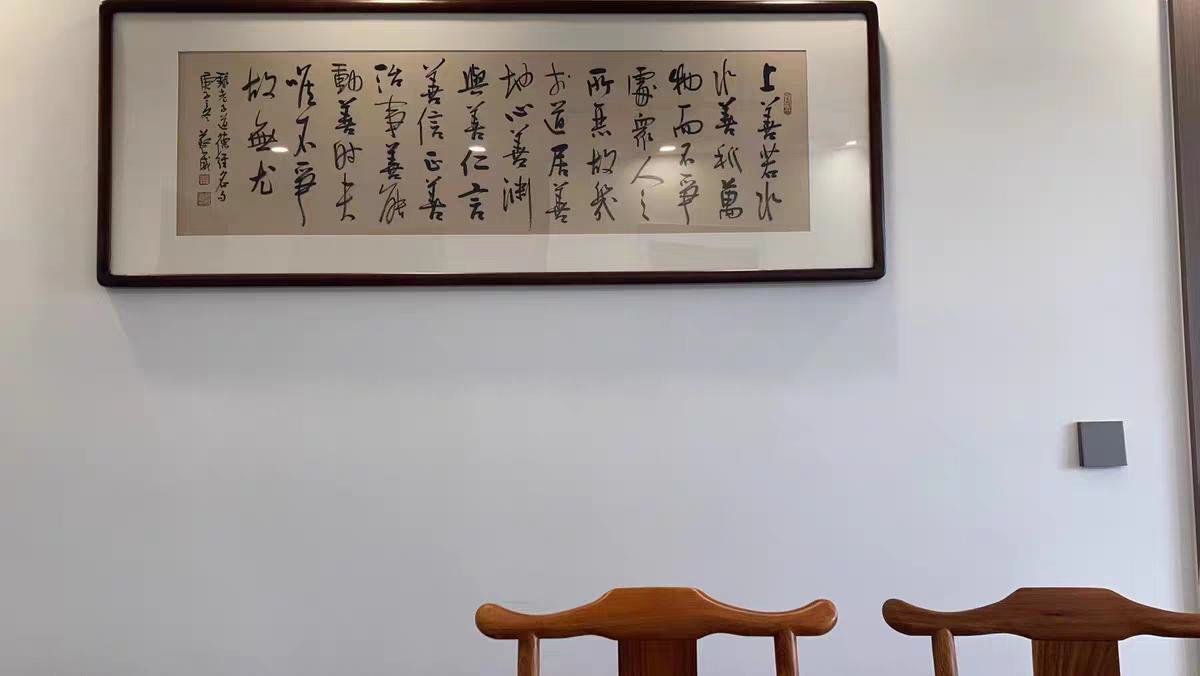 上善若水
水善利萬
物而不爭
處衆人之
所惡故幾
於道居善
地心善淵
與善仁言
善信正善
治事善能
動善时夫
唯不爭
故無尤
錄老子道德經名句
庚子夏